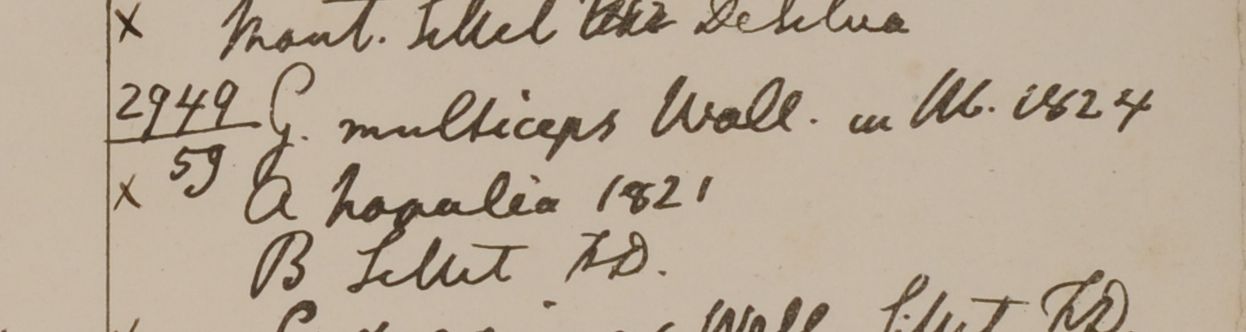 x Mont. Sillet 1822 DeSilva
2949 G. multiceps Wall. in Ab. 1824
59
x A Napalia 1821
B Sillet F.D.
Wall. Sillet F.D.